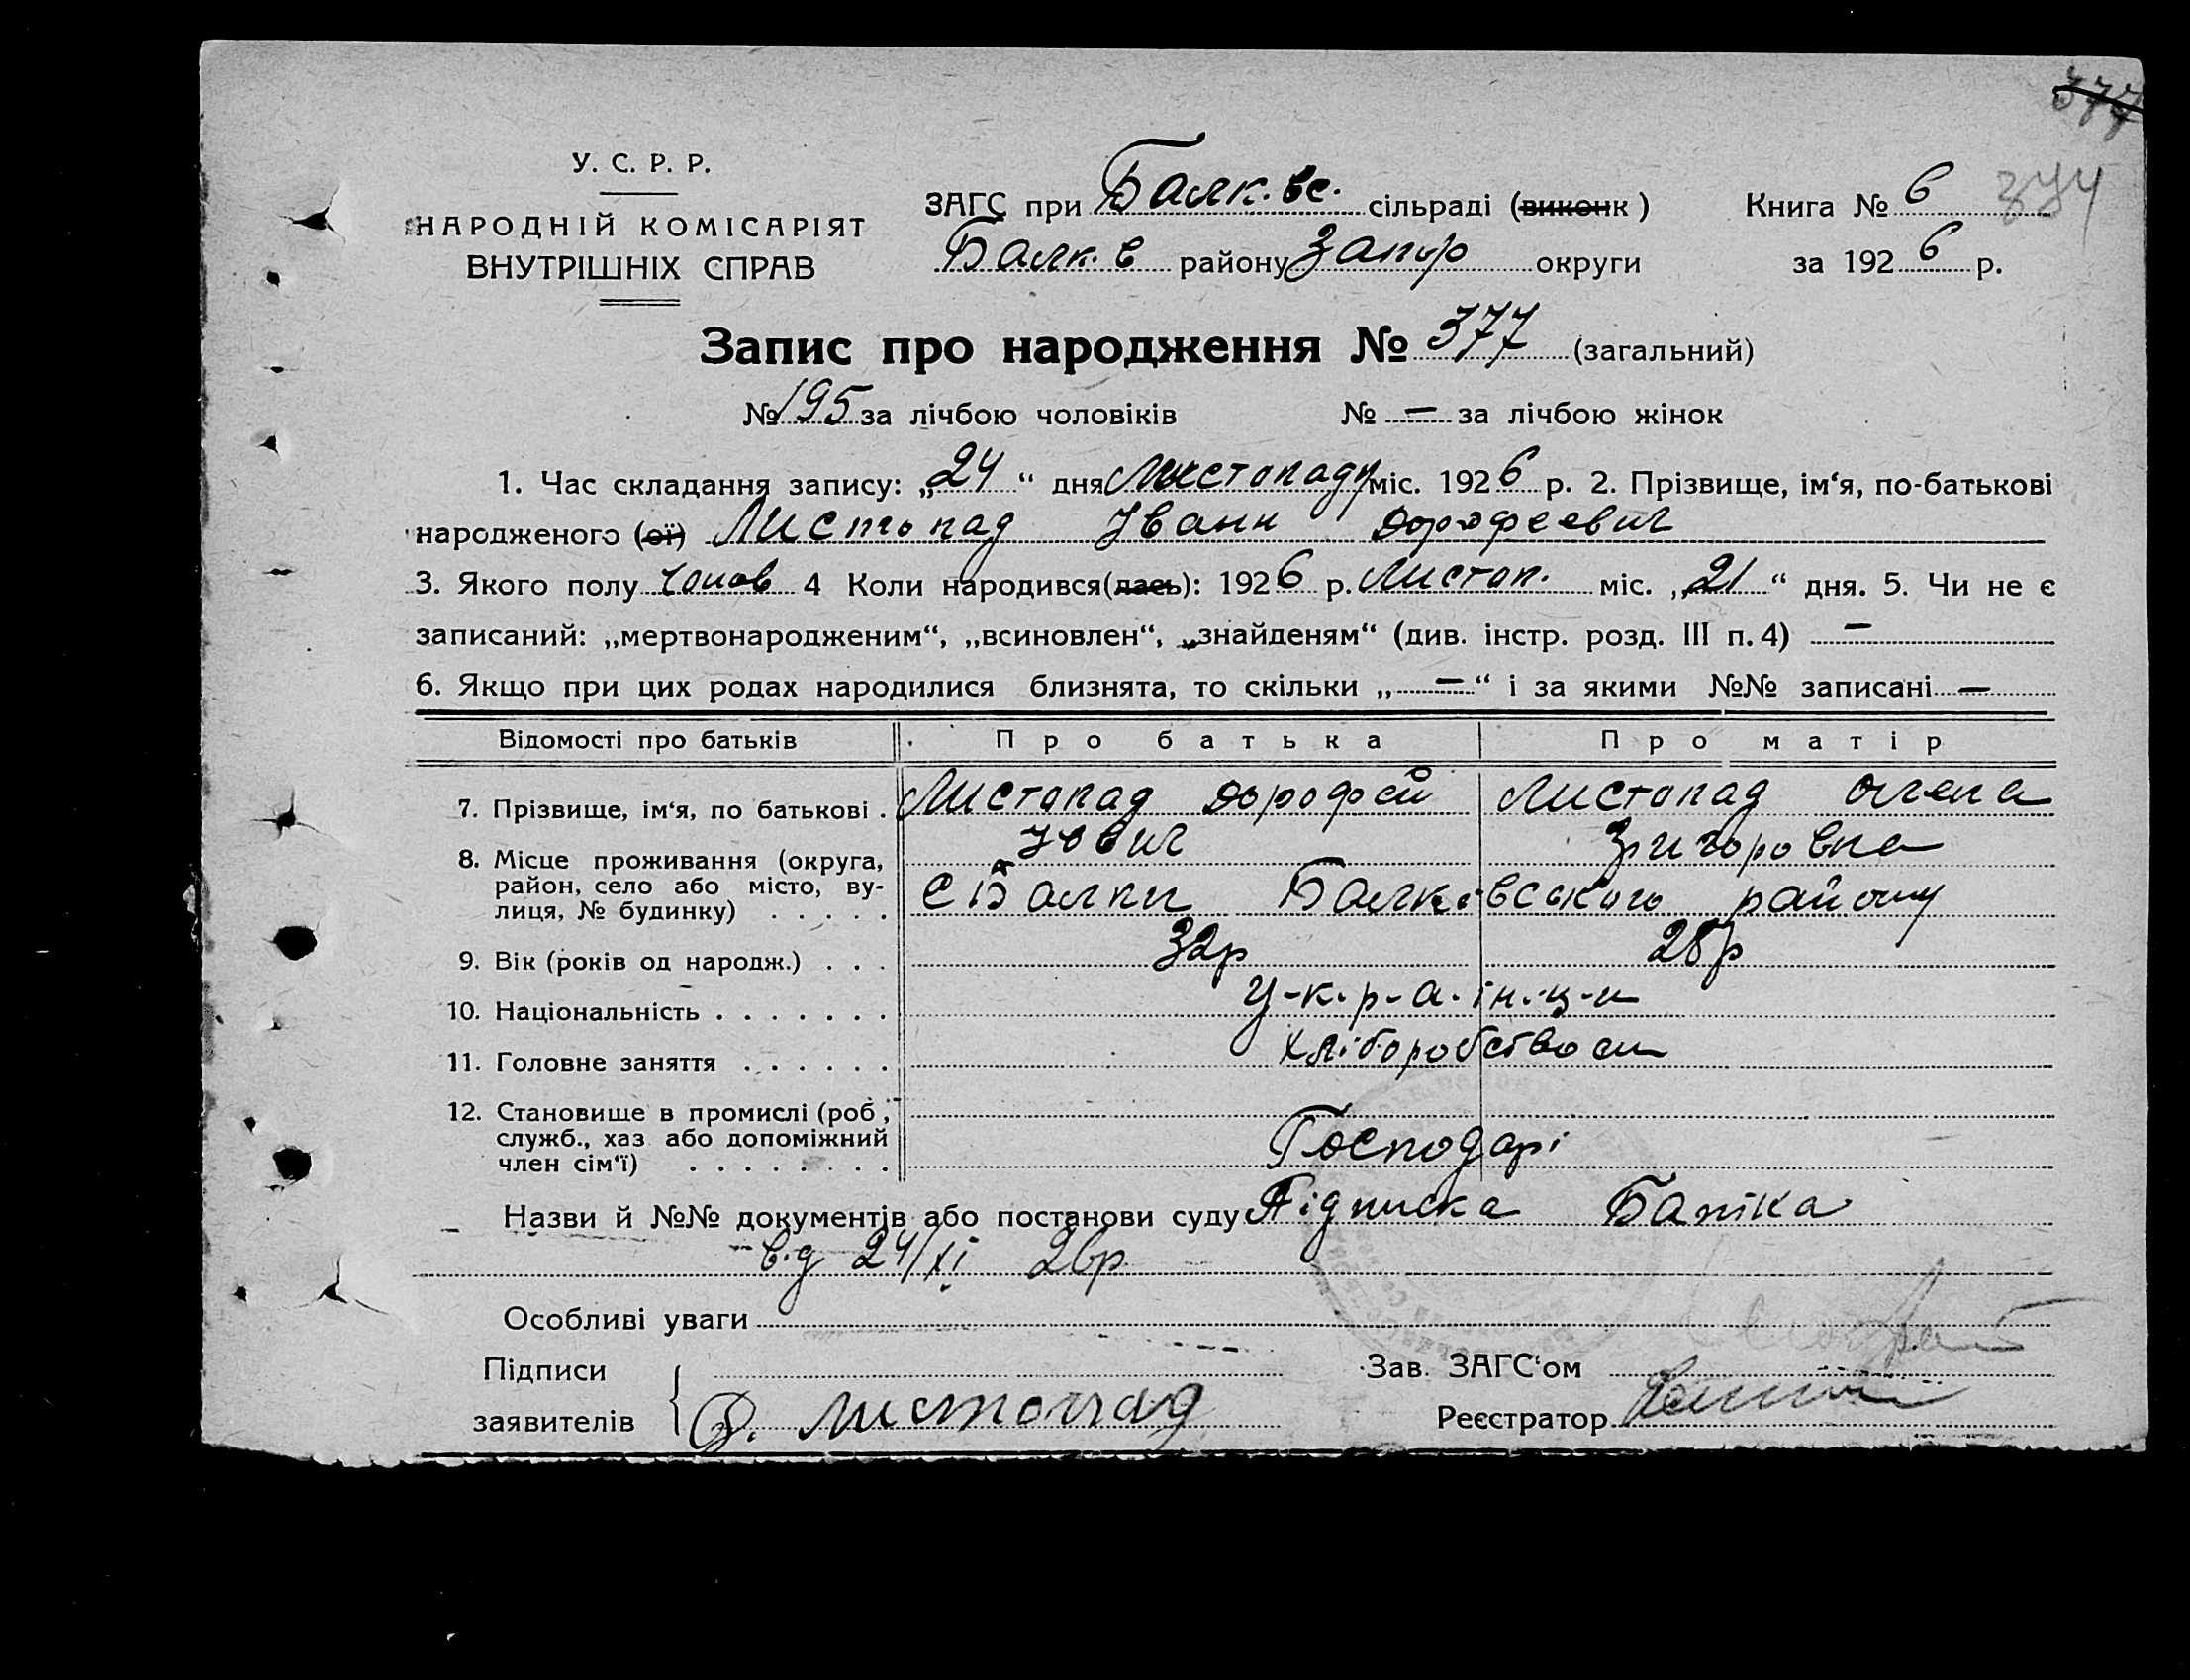 377
У. С. Р. Р.
НАРОДНІЙ КОМІСАРІЯТ
ВНУТРІШНІХ СПРАВ
ЗАГС при Балк. вс. сільраді (виконк) Книга № 6 374
Балк. в району Запор округи за 1926 р.
Запис про народження № 377 (загальний)
№ 195 за лічбою чоловіків № — за лічбою жінок
1. Час складання запису: „24“ дня Листопаду міс. 1926 р. 2. Прізвище, ім‘я, по-батькові
народженого (ої) Листопад Іванн Дорофеевич
3. Якого полу чолов 4 Коли народився(лась): 1926 р. Листоп. міс. „21“ дня. 5. Чи не є
записаний: „мертвонародженим“, „всиновлен“, „знайденям“ (див. інстр. розд. III п. 4) —
6. Якщо при цих родах народилися близнята, то скільки „—“ і за якими №№ записані —
Відомості про батьків Про батька Про матір
7. Прізвище, ім‘я, по батькові . Листопад Дорофей Листопад Олена
Григоровна
8. Місце проживання (округа,
район, село або місто, ву-
лиця, № будинку) . . . . . с Балки Балківського району
9. Вік (років од народж.) . . . 32р 28р
10. Національність . . . . . . . у-к-р-а-їн-ц-и
11. Головне заняття . . . . . . хліборобством
12. Становище в промислі (роб,
служб., хаз або допоміжний
член сім‘ї) . . . . . . . . Господарі
Назви й №№ документів або постанови суду Підписка Батька
від 24/XI 26р
Особливі уваги
Підписи Зав. ЗАГС‘ом
заявителів Д. Листопад Реєстратор